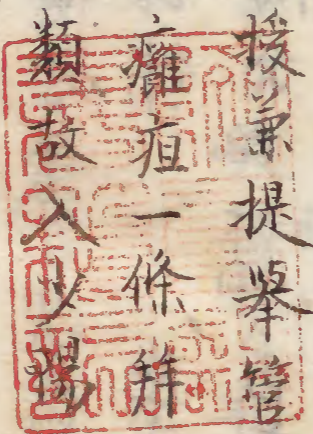 授兼提舉管
癰疽一條并
類故入少陽